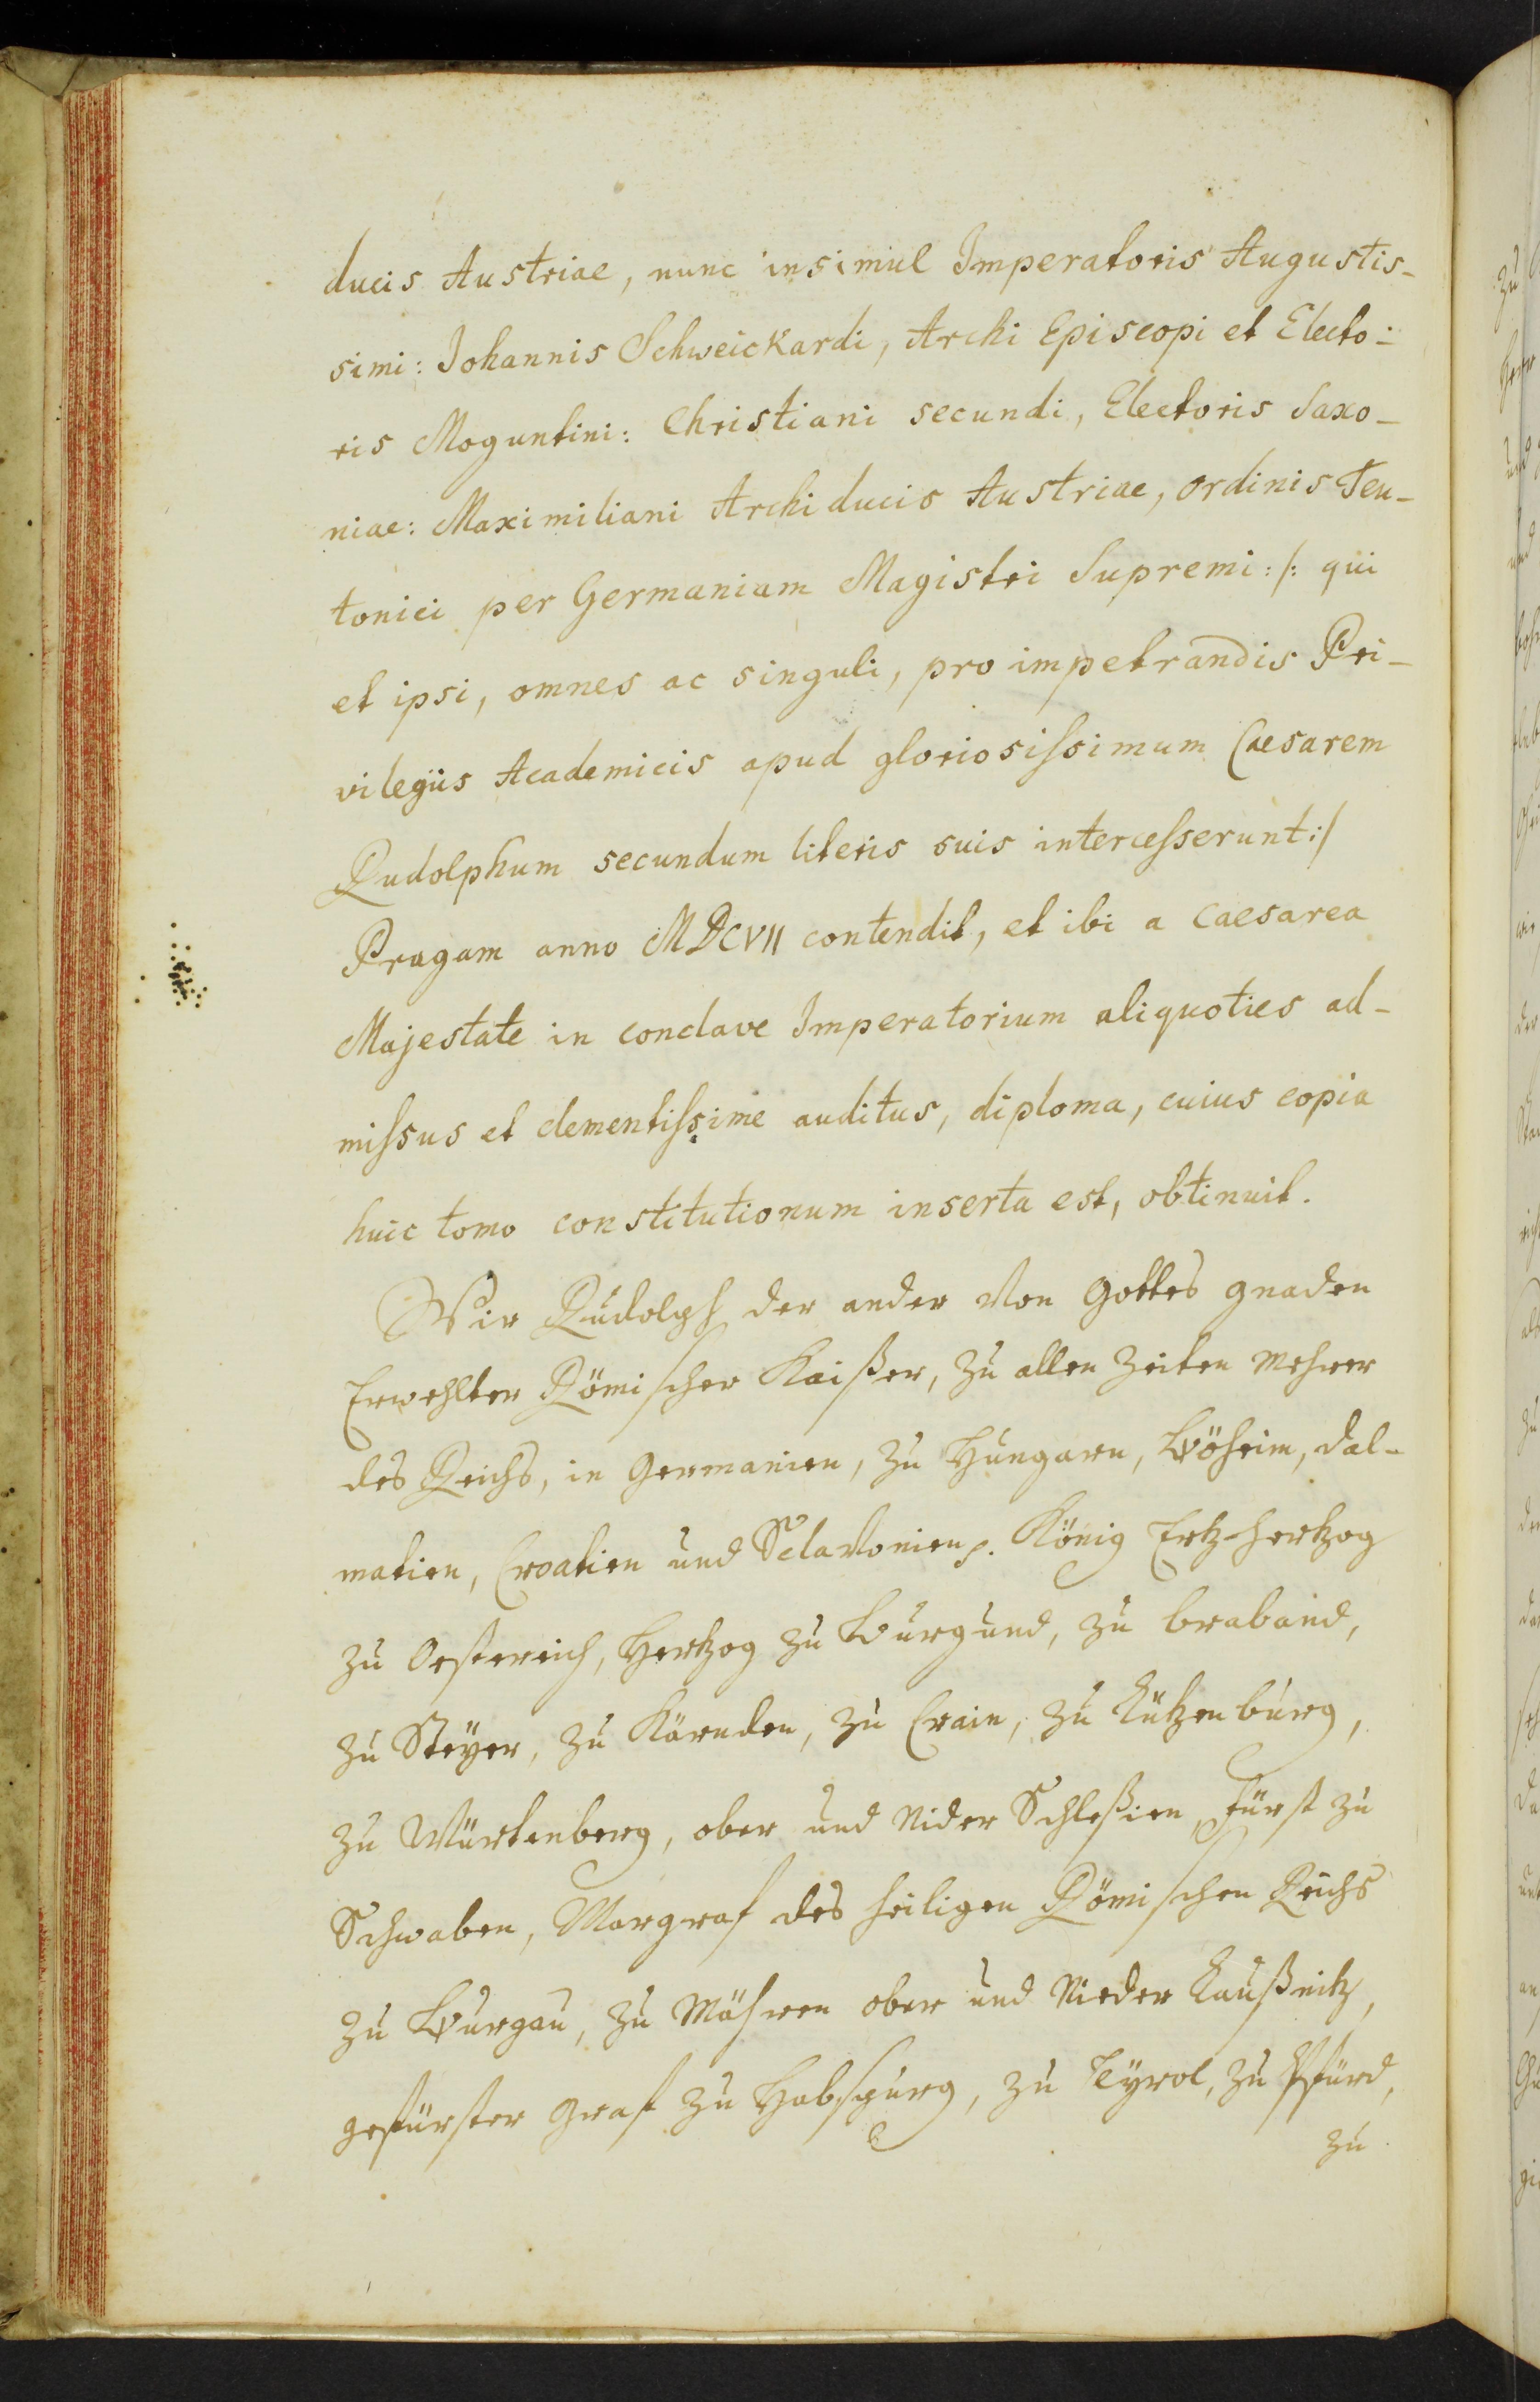 ducis Austriae, nunc insimul Imperatoris Augustis-
simi: Johannis Schweickardi, Archi Episcopi et Electo-
ris Moguntini: Christiani secundi, Electoris Saxo-
niae: Maximiliani Archi ducis Austriae, ordinis Teu-
tonici per Germaniam Magistri Supremi:/: qui
et ipsi, omnes ac singuli, pro impetrandis Pri-
vilegiis Academicis apud gloriosissimum Caesarem
Rudolphum secundum literis suis intercesserunt:/
Pragam anno MDCVII contendit, et ibi a Caesarea
Majestate in conclave Imperatorium aliquoties ad-
missus et clementissime auditus, diploma, cuius copia
huic tomo constitutionum inserta est, obtinuit.
Wir Rudolph der ander Von Gottes gnaden
Erwehlter Römischer Kaißer, zu allen Zeiten Mehrer
des Reichs, in Germanien, zu Hungarn, Böheim, Dal-
matien, Croatien und Sclavonien p. König Ertz-Hertzog
zu Oestereich, Hertzog zu Burgund, zu braband,
zu Steyer, zu Kärnden, zu Crain, zu Lützenburg,
zu Würtenberg, ober und Nider Schleßien, Fürst zu
Schwaben, Margraf des heiligen Römischen Reichs
zu Burgau, zu Mähren ober und Nieder Laußnitz,
gefürster Graf zu Habspurg, zu Teyrol, zu Pfürd,
zu